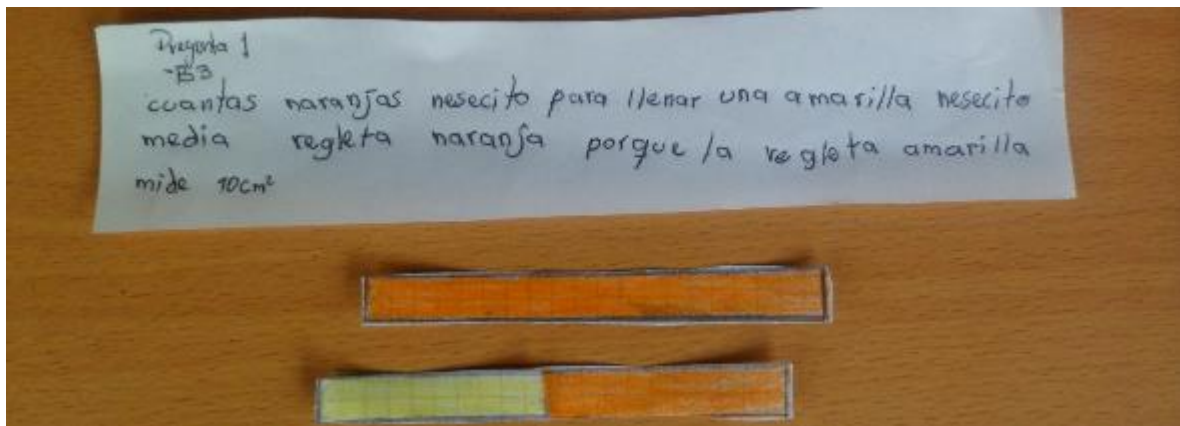 Pregunta 1
-E3
cuantas naranjas nesecito para llenar una amarilla nesecito
media regleta naranja porque la regleta amarilla
mide 10cm²